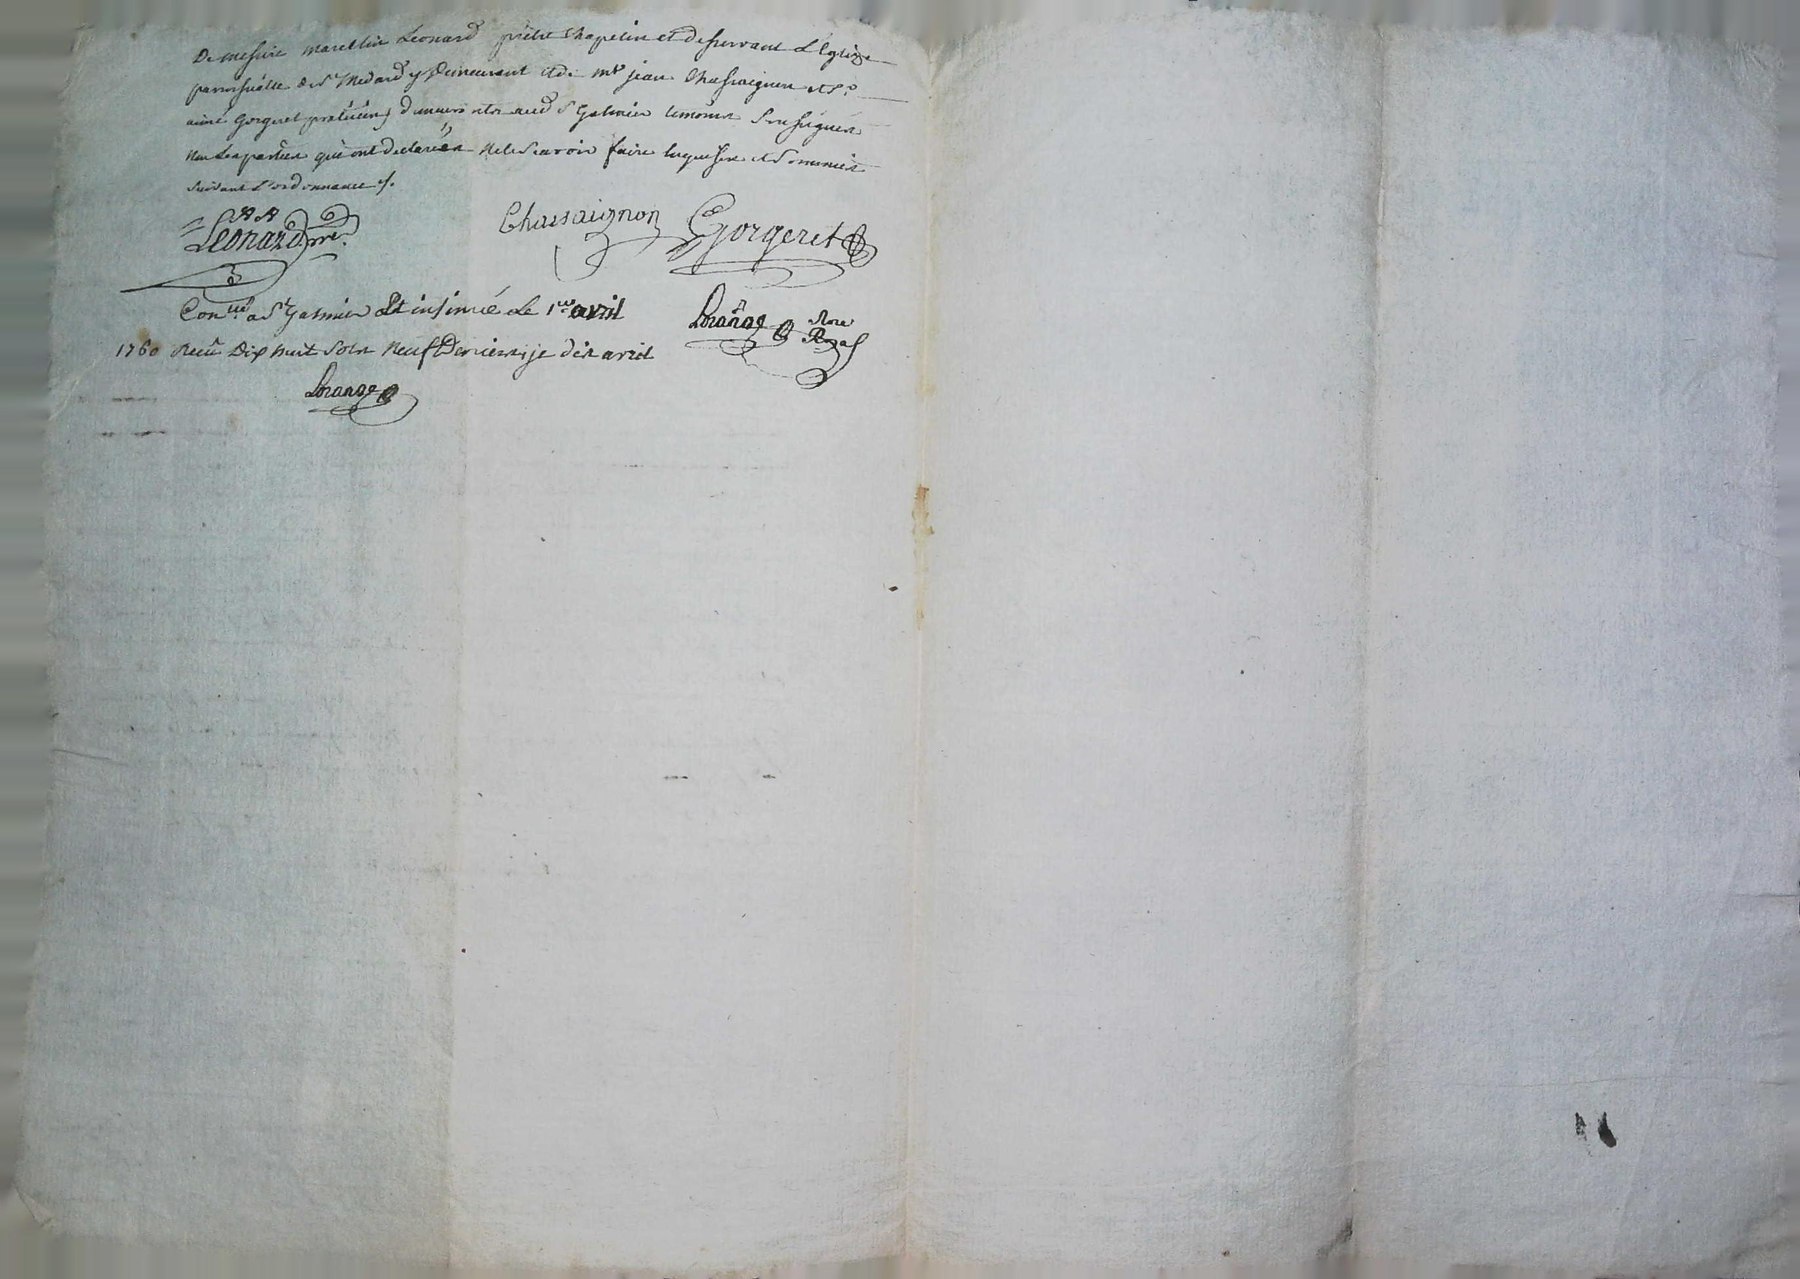 De messire marcellin Léonard prêtre Chapelin et desservant L'Eglize
parroissialle de St Medard y demeurant et de mre jean Chassaignon et Sr
aimé Gorgeret praticien, demeurants aud St Galmier temoins soussignés
non Les parties qui ont declarées ne le scavoir faire enquises et sommées
suivant L'ordonnance ./.
Leonard pre.
Chassaignon
Gorgeret
Conllé a St Galmier Et insinué Le 1er avril
1760 Recu Dix huit sols Neuf Deniers je dis avril
Lorange
Lorange Nore
Royal